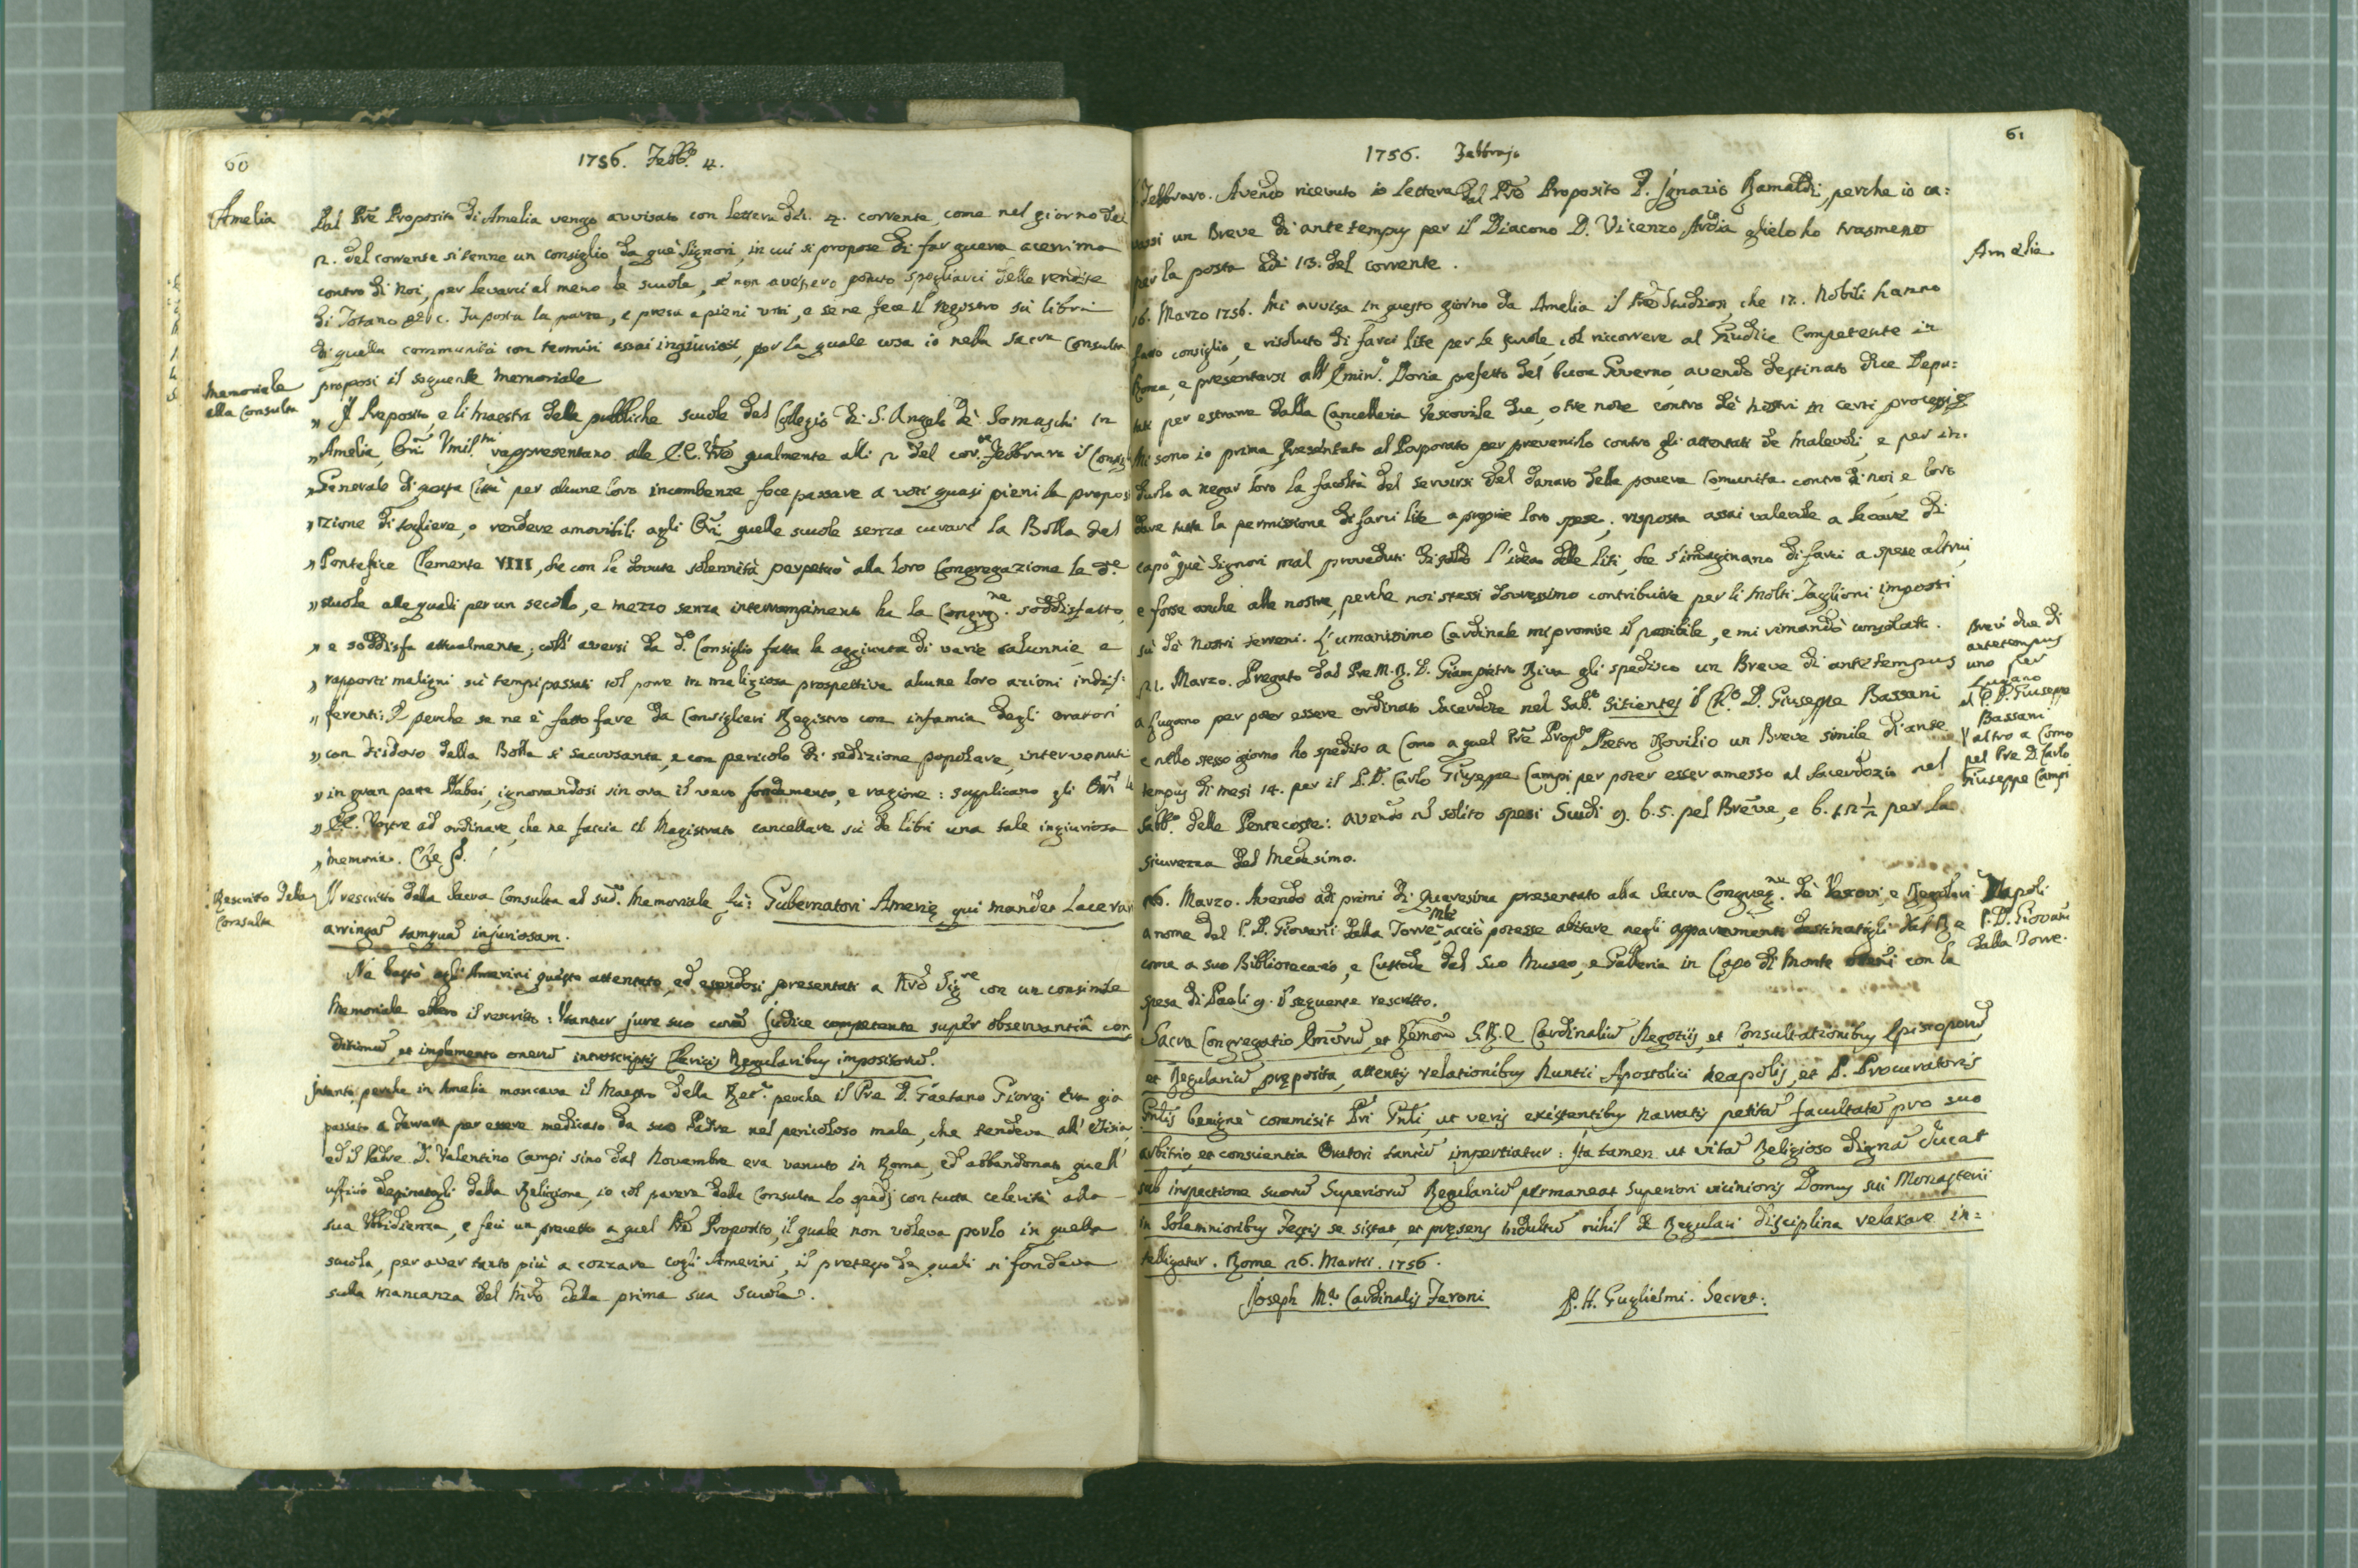 60
1756. Febb.o 4.
Amelia
Dal Pre Proposito di Amelia vengo avvisato con lettera dei 4. corrente come nel giorno del
2. del corrente si tenne un consiglio da què Signori, in cui si propose di far guerra acerrima
contro di noi, per levarci al meno le scuole, se non avessero potuto spogliarci delle rendite
di Totano &c. Fu posta la parte, e presa a pieni voti, e se ne fece il registro sù libri
di quella communità con termini assai ingiuriosi, per la quale cosa io nella Sacra Consulta
proposi il seguente memoriale
Memoriale
alla Consulta
„ Il Preposito, e li Maestri delle pubbliche scuole del Collegio di S. Angelo dè Somaschi in
„ Amelia, Ori Umil.mi rappresentano alle E.E. Vre qualmente alli 2 del cor.te Febbraro il Consig
„ Generale di questa Città per alcune loro incombenze fece passare a voti quasi pieni la propos
„ izione di togliere, o rendere amovibili agli Ori quelle scuole senza curare la Bolla del
„ Pontefice Clemente VIII, che con le dovute solennità perpetuò alla loro Congregazione le de
„ scuole alle quali per un secolo, e mezzo senza interrompimento ha la Congrg.ne soddisfatto,
„ e soddisfa attualmente, coll' aversi da d.o Consiglio fatta la aggiunta di varie calunnie, e
„ rapporti maligni sù tempi passati col porre in maliziosa prospettiva alcune loro azioni indif:
„ ferenti: E perche se ne è fatto fare da Consiglieri Registro con infamia degli oratori
„ con disdoro della Bolla sì sacrosanta, e con pericolo di sedizione popolare, intervenuti
„ in gran parte Plebei, ignorandosi sin ora il vero fondamento, e ragione: supplicano gli Ori le
„ EE. Vostre ad ordinare, che ne faccia il Magistrato cancellare sù de libri una tale ingiuriosa
„ memoria. Che &.
Rescritto della
Consulta
Il rescritto della Sacra Consulta al sud.o Memoriale fù: Gubernatori Amerię qui mandet lacerar
arringa tamqua injuriosam.
Ne bastò agli Amerini questo attentato, ed essendosi presentati a Nro Sig.re con un consimile
Memoriale ebbero il rescritto: Utantur jure suo cora Judice competente super observantia con
ditionu, et implemento oneru introscriptis Clericis Regularibus impositoru.
Intanto, perche in Amelia mancava il Maestro della Ret.a perche il Pre D. Gaetano Giorgi era gia
passato a Ferrara per essere medicato da suo Padre nel pericoloso male, che tendeva all' etisia,
ed il Padre D. Valentino Campi sino dal Novembre era venuto in Roma, ed abbandonato quell'
uffizio destinatogli dalla Religione, io col parere della Consulta lo spedj con tutta celerità alla
sua Ubbidienza, e feci un precetto a quel Pre Proposito, il quale non voleva porlo in quella
scuola, per aver tanto più a cozzare cogli Amerini, il pretesto de quali si fondeva
sulla mancanza del Mro della prima sua Scuola.
61
1756. Febbrajo
Febbraro. Avendo ricevuto io lettera dal Pre Proposito D. Ignazio Ramaldi, perche io ca:
vassi un Breve di ante tempus per il Diacono D. Vicenzo Ardia glielo ho trasmesso
per la posta adi 13. del corrente.
Amelia
16. Marzo 1756. Mi avvisa in questo giorno da Amelia il Pre Studiosi, che 12. Nobili hanno
fatto consiglio, e risoluto di farci lite per le scuole, col riccorrere al Giudice Competente in
Roma, e presentarsi all' Emin.o Doria prefetto del buon Governo, avendo destinato due Depu:
tati per estrarre dalla Cancelleria Vescovile due, o tre note contro dè nostri in certi processi
Mi sono io prima presentato al Porporato per prevenirlo contro gli attentati de malevoli, e per in:
durlo a negar loro la facoltà del servirsi del danaro della povera Comunità contro di noi, e loro
dare tutta la permissione di farci lite a proprie loro spese; risposta assai valevole a levare di
capo à què Signori mal proveduti di soldo l'idea delle liti, che s'imaginano di farci a spese altrui,
e forse anche alle nostre, perche noi stessi dovressimo contribuire per li molti Taglioni imposti
sù dè nostri terreni. L'umanissimo Cardinale mi promise il possibile, e mi rimandò consolato.
Brevi due di
antetempus
uno per
Lugano
al P. D. Giuseppe
Bassani
l'altro a Como
pel Pre D. Carlo
Giuseppe Campi
21. Marzo. Pregato dal Pre M. R. D. Giampietro Riva gli spedisco un Breve di antetempus
a Lugano per poter essere ordinato Sacerdote nel Sab.o Sitientes il Ch.o D. Giuseppe Bassani
e nello stesso giorno ho spedito a Como a quel Pre Prop.o Pietro Rovilio un Breve simile di ante
tempus di mesi 14. per il P. D. Carlo Giuseppe Campi per poter esser amesso al Sacerdozio nel
Sabb.o delle Pentecoste: avendo il solito spesi Scudi 9. b. 5. pel Breve, e b. 12 ½ per la
sicurezza del medesimo.
Napoli
P. D. Giovani
dalla Torre.
26. Marzo. Avendo adi primi di Quaresima presentato alla Sacra Congreg.ne dè Vescovi, e Regolari
a nome del P. D. Giovani dalla Torre acciò potesse abitare negli appartamenti destinatigli dal Re
come a suo Bibliotecario, e Custode del suo Museo, e Galleria in Capo di Monte con la
spesa di Paoli 9. il seguente rescritto.
Sacra Congregatio Emoru, et Rmoru S. R. E. Cardinaliu Negotiis, et Consultationibus Episcoporu,
et Regulariu pręposita, attentis relationibus Nuntii Apostolici Neapolis, et P. Procuratoris
Gnlis benigne commisit Pri Gnli, ut veris existentibus narratis petita facultate pro suo
arbitrio, et conscientia Oratori tantu impertiatur: Ita tamen ut vita Religioso digna ducat
sub inspectione suoru Superioru Regulariu permaneat Superiori vicinioris Domus sui Monasterii
in Solemnioribus Festis se sistat, et pręsens indultu nihil de Regulari disciplina relaxare in:
telligatur. Rome 26. Martii. 1756.
Joseph M.a Cardinalis Feroni
P. H. Guglielmi. Secret: